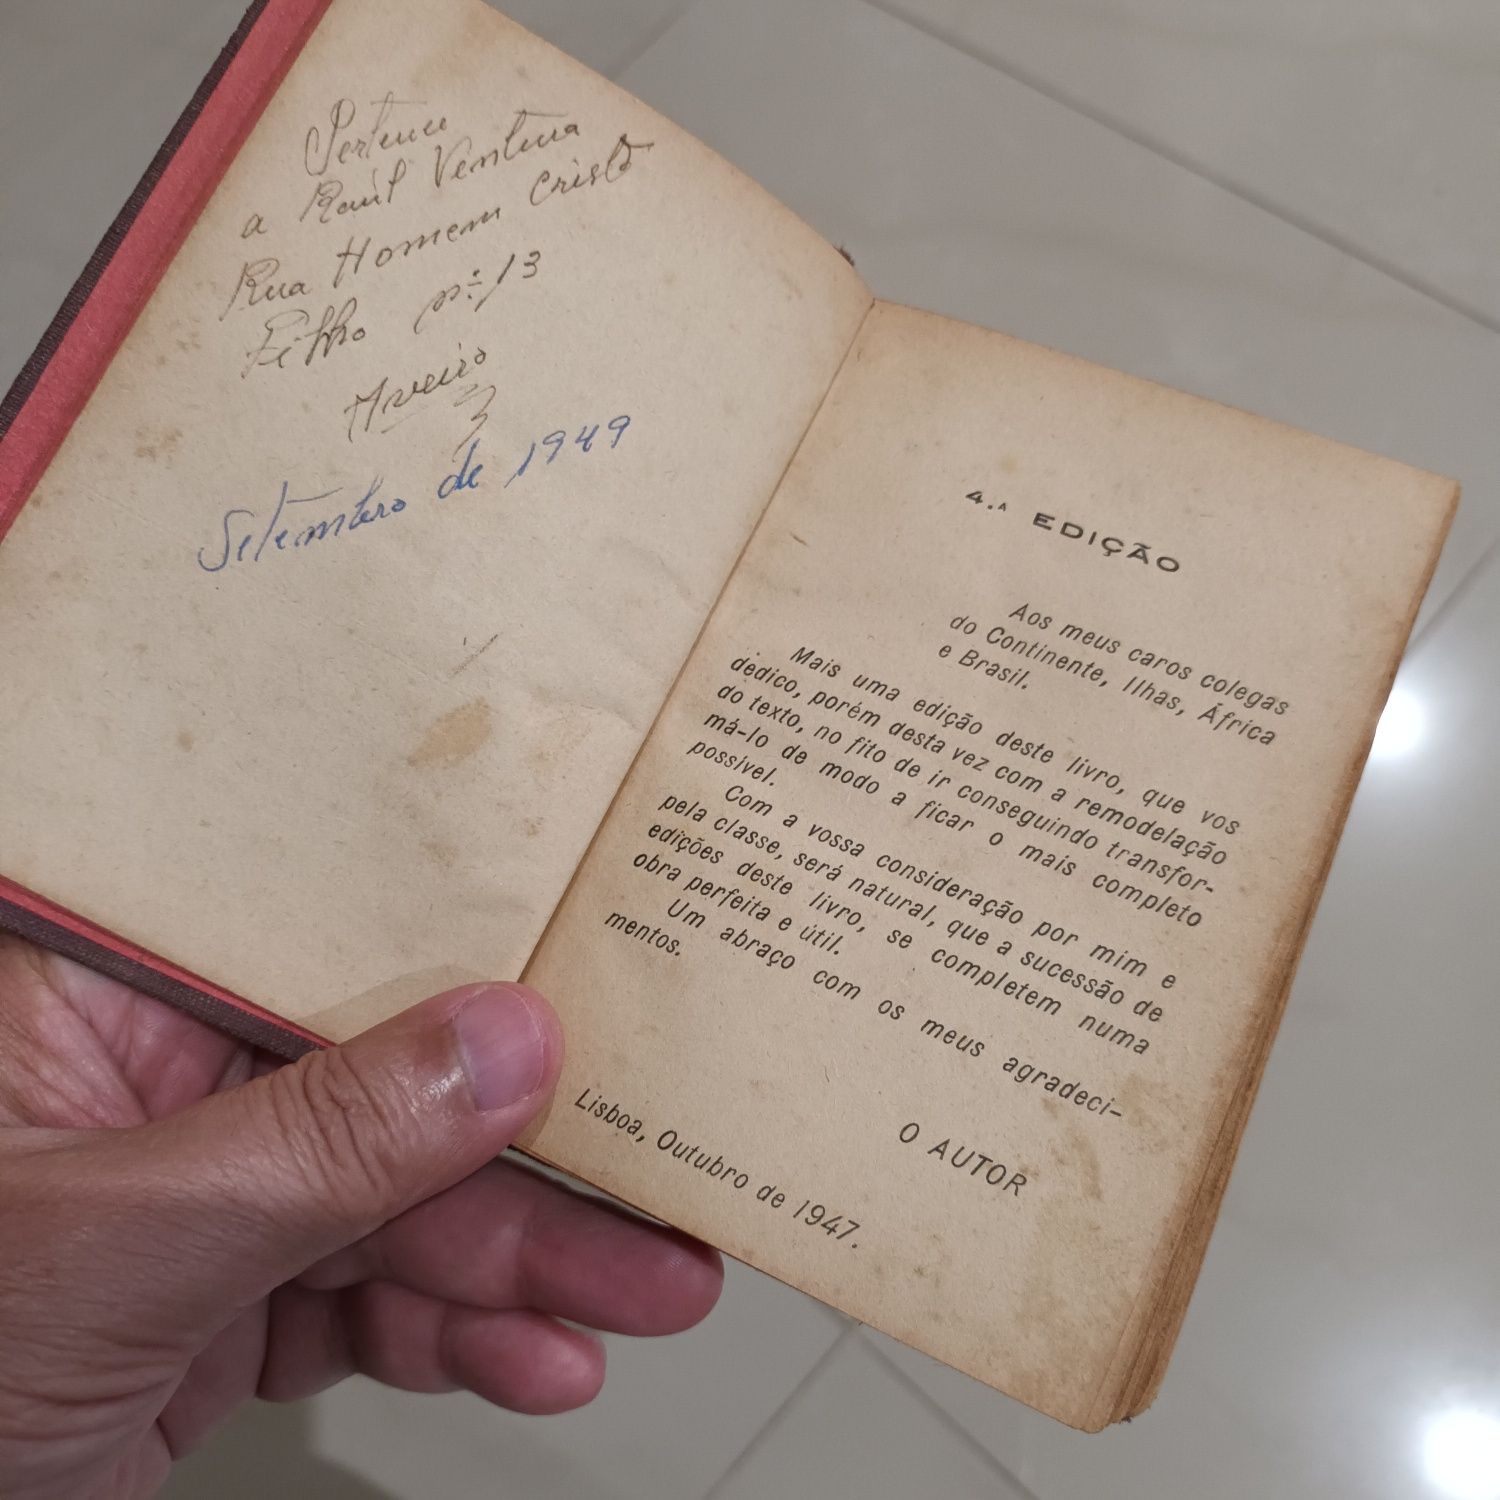 Pertence
a Raúl Ventura
Rua Homem Cristo
Filho nº 13
Aveiro
Setembro de 1949
4.ᴬ EDIÇÃO
Aos meus caros colegas
do Continente, Ilhas, África
e Brasil.
Mais uma edição deste livro, que vos
dedico, porém desta vez com a remodelação
do texto, no fito de ir conseguindo transfor-
má-lo de modo a ficar o mais completo
possível.
Com a vossa consideração por mim e
pela classe, será natural, que a sucessão de
edições deste livro, se completem numa
obra perfeita e útil.
Um abraço com os meus agradeci-
mentos.
O AUTOR
Lisboa, Outubro de 1947.